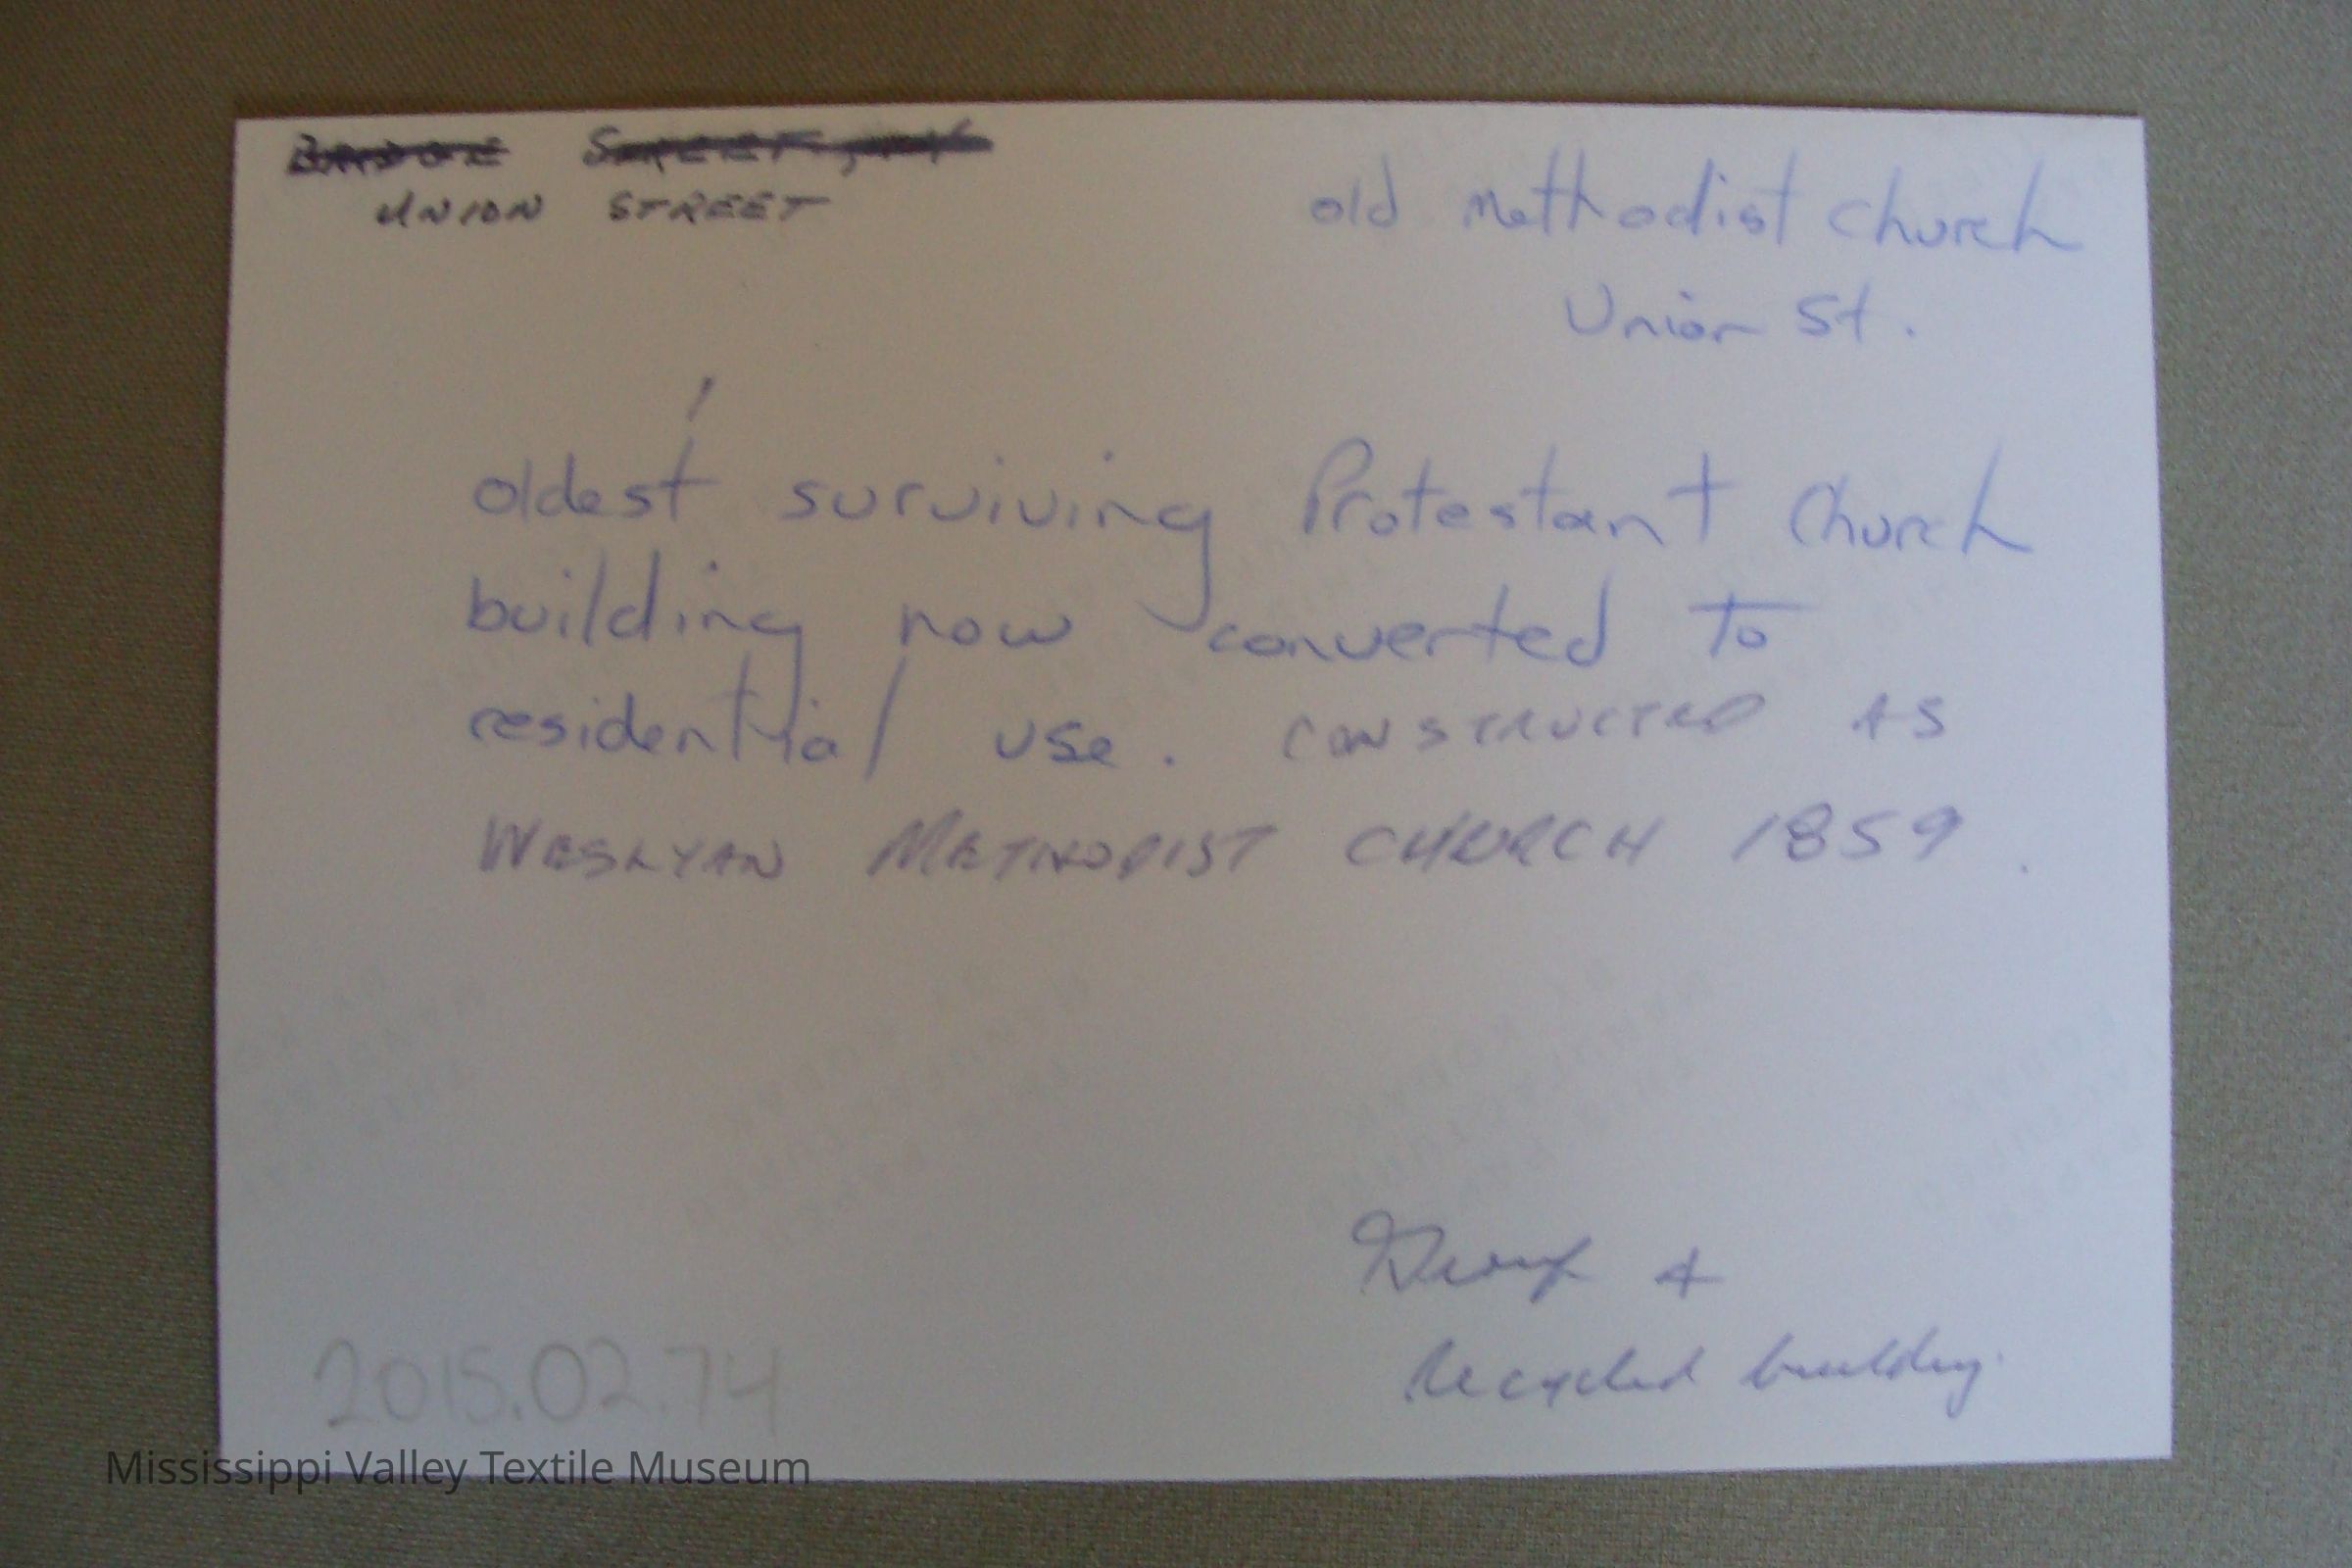 BRIDGE STREET,
UNION STREET
old methodist church
Union St.
oldest surviving Protestant Church
building now converted to
residential use. CONSTRUCTED AS
WESLYAN METHODIST CHURCH 1859.
&
Recycled building.
2015.02.74
Mississippi Valley Textile Museum